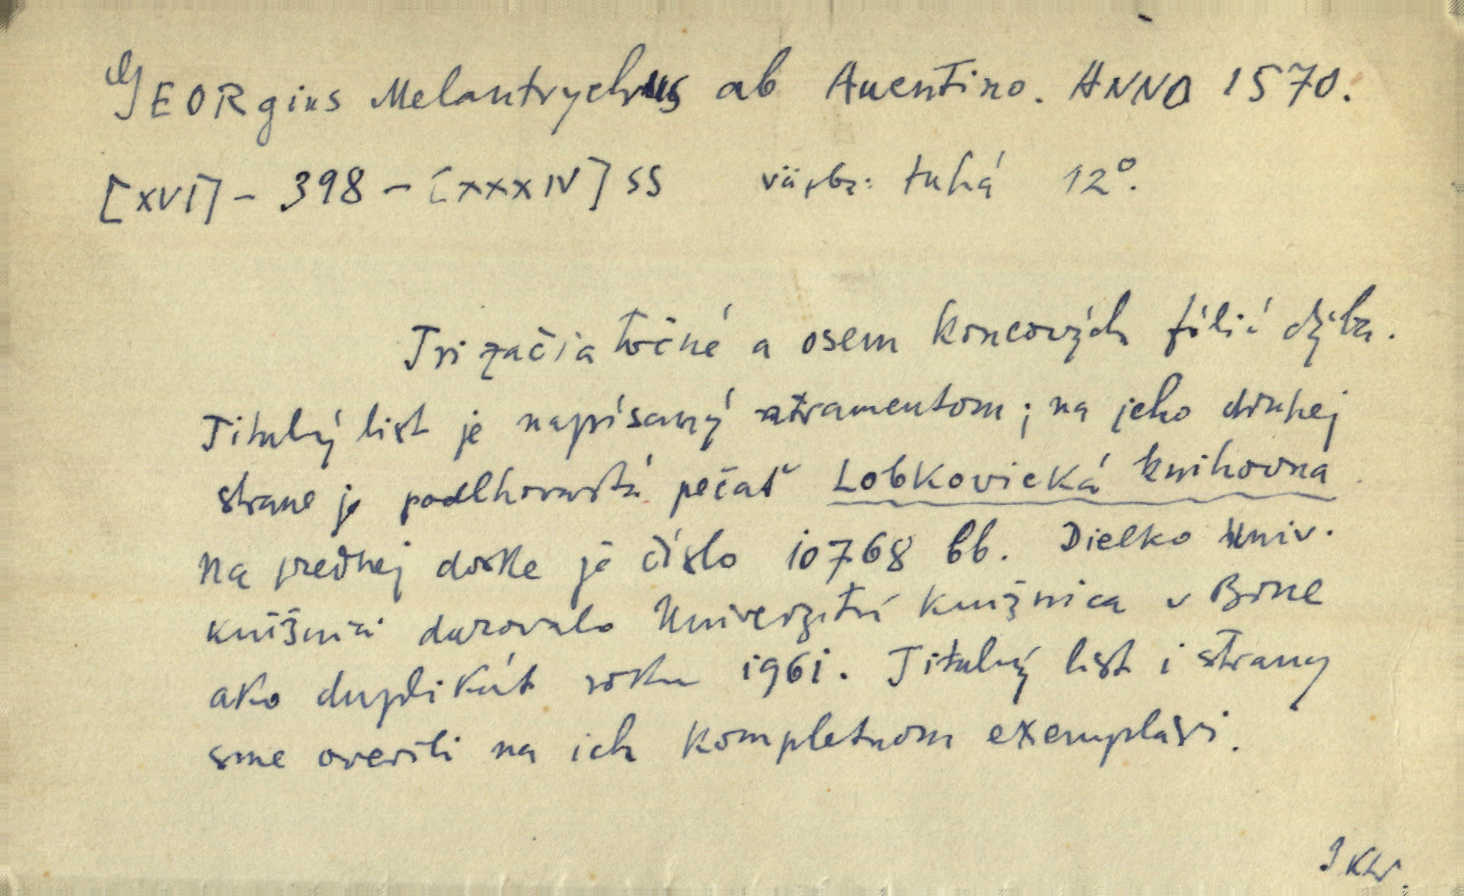 GEORgius Melantrychus ab Auentino. ANNO 1570.
[XVI] - 398 - [XXXIV] ss väzba: tuhá 12°.
Tri začiatočné a osem koncových fólií chýba.
Titulný list je napísaný atramentom; na jeho druhej
strane je podlhovastá pečať Lobkovická knihovna
Na prednej doske je číslo 10768 bb. Dielko Univ.
knižnici darovala Univerzitná knižnica v Brne
ako duplikát roku 1961. Titulný list i strany
sme overili na ich kompletnom exemplári.